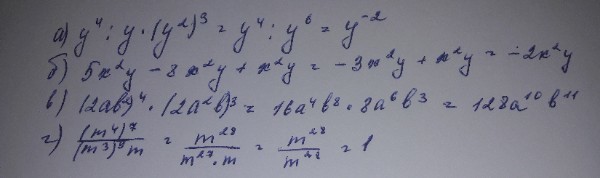 а) y⁴ : y · (y²)³ = y⁴ : y⁶ = y⁻²
б) 5x²y − 8x²y + x²y = −3x²y + x²y = −2x²y
в) (2ab²)⁴ · (2a²b)³ = 16a⁴b⁸ · 8a⁶b³ = 128a¹⁰b¹¹
г) (m⁴)⁷ / (m³)⁹m = m²⁸ / m²⁷·m = m²⁸ / m²⁸ = 1